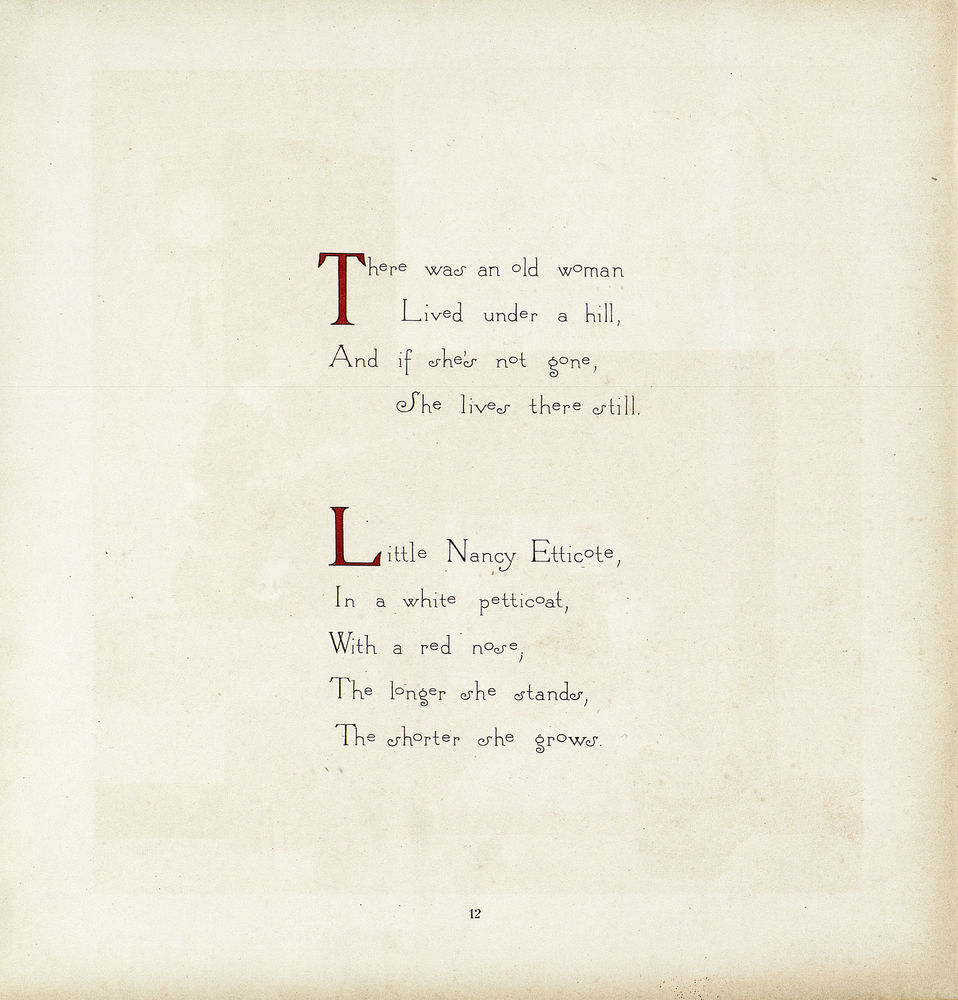 There was an old woman
Lived under a hill,
And if she's not gone,
She lives there still.
Little Nancy Etticote,
In a white petticoat,
With a red nose;
The longer she stands,
The shorter she grows.
12